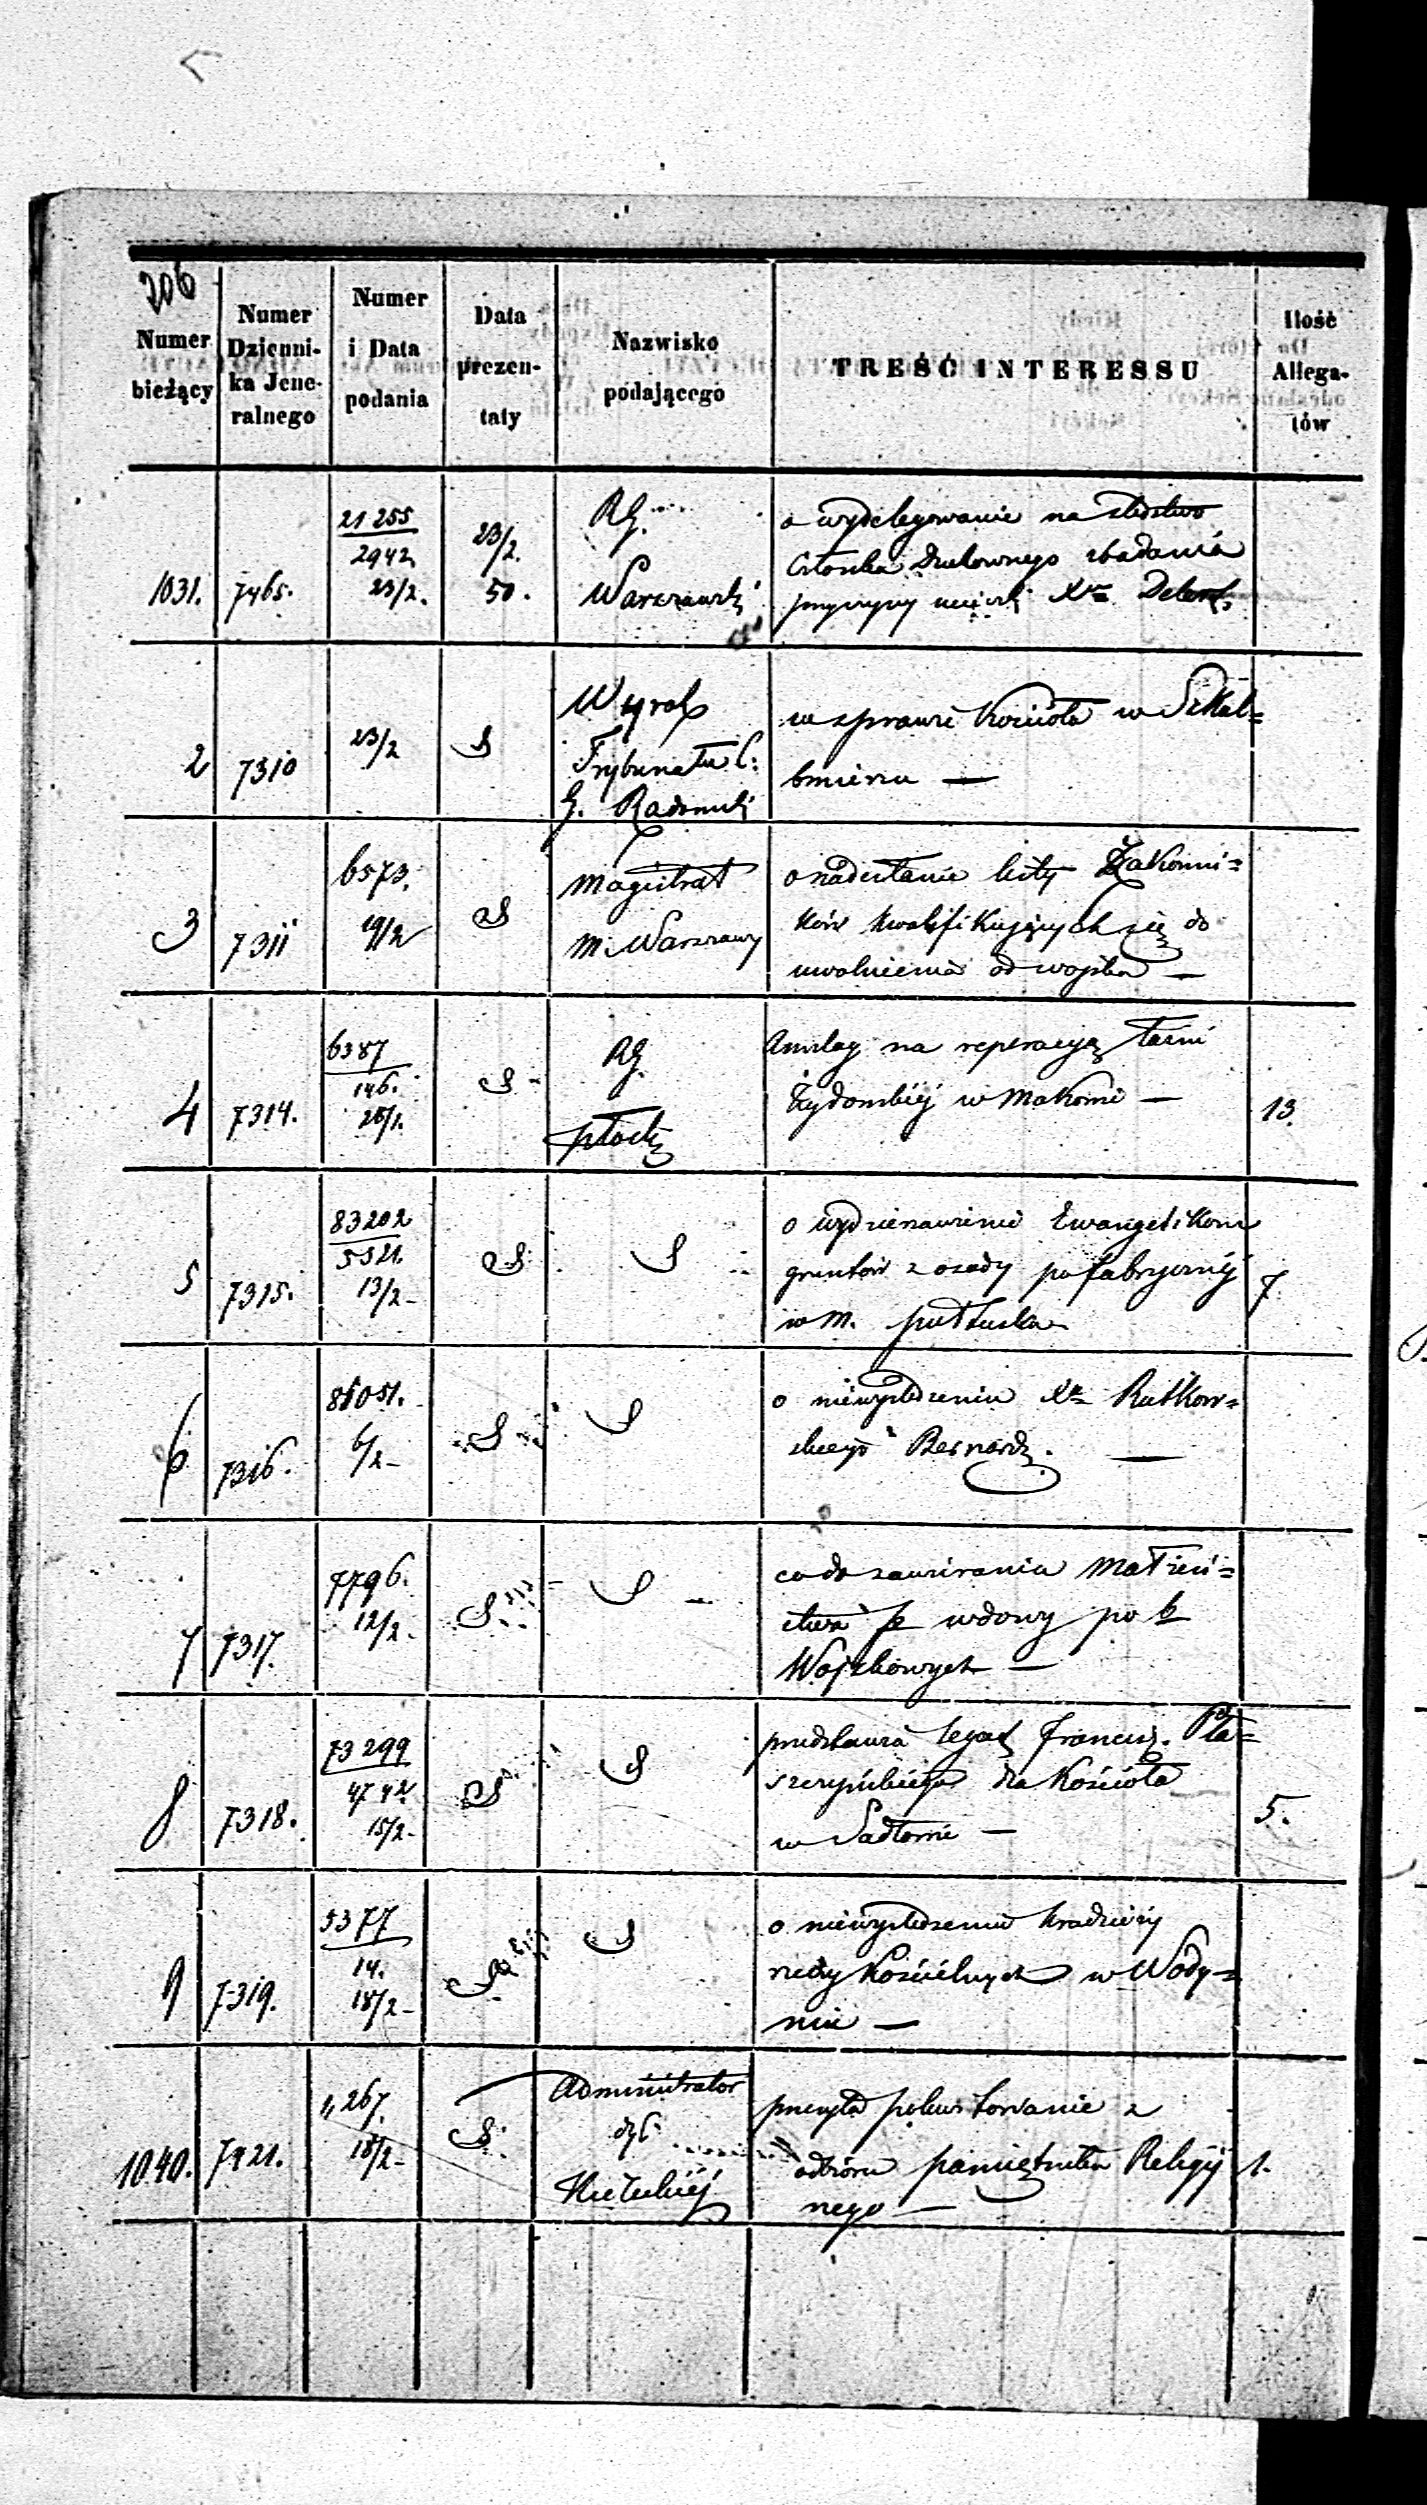 206
Numer bieżący
Numer Dzienni-ka Jene-ralnego
Numer i Data podania
Data prezen-taty
Nazwisko podającego
TREŚĆ INTERESSU
Ilość Allega-tów
1031. 7465. 21255 2942 23/2. 23/2. 50. RG. Warszawski
o wydelegowanie na śledztwo
Członka Duchownego zbadania
przyczyny ucieczki Xa
2 7310 23/2 S Wyrok Trybunału C. G. Radomski
w sprawie Kościoła w Szkal=
bmierzu —
3 7311 6573. 19/2 S Magistrat m. Warszawy
o nadesłanie listy Zakonni=
ków kwalifikujących się do
uwolnienia od wojska —
4 7314. 6387 146. 28/1. S RG. Płocki
Anszlag na reperacyą łaźni
Żydowskiéj w Makowie — 13.
5 7315. 83202 5521. 13/2 S S
o wydzierżawienie Ewangelikom
gruntów z osady pofabrycznéj 7
w m. Pułtusku
6 7316. 85051. 6/2 S S
o niewyśledzeniu Xa Rutkow=
skiego Bernard. —
7 7317. 7796. 12/2 S S
co do zawierania Małżeń=
stwa p wdowy po b
Wojskowych —
8 7318. 73299 4742 15/2 S S
przedstawia legat Francisz. Pła=
szczyńskiego dla Kościoła
w Sadłowie — 5.
9 7319. 5377 14. 18/2 S S
o niewyśledzeniu kradzieży
rzeczy Kościelnych w Wody=
niu —
1040. 7421. 267. 18/2 S Administrator dyc. Kieleckiéj
przesyła pokwitowanie z
odbioru pamiętnika Religij 1.
nego —